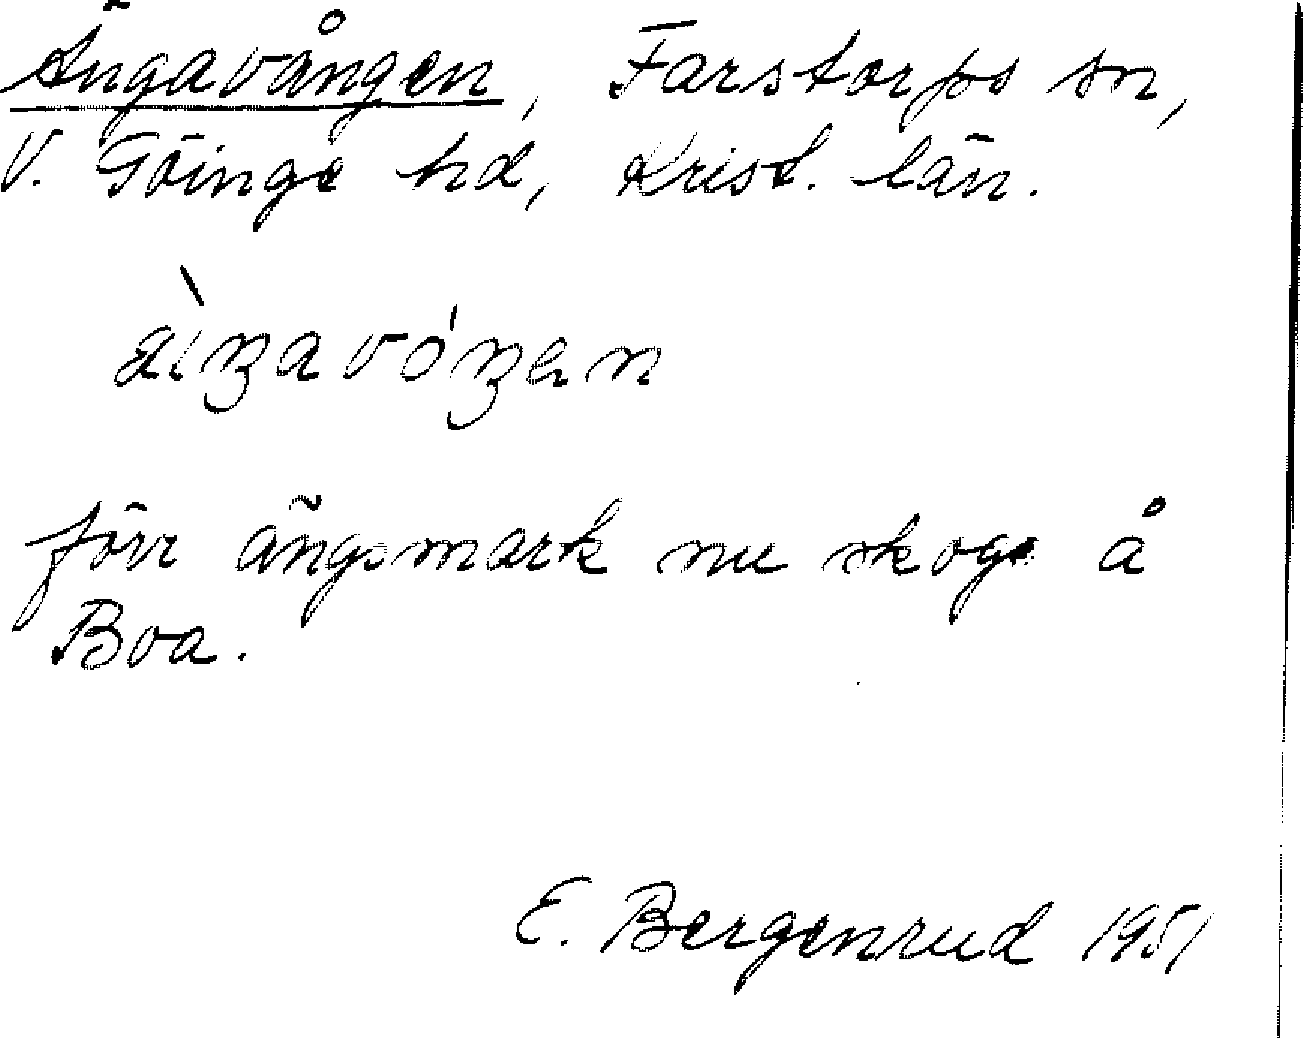 Ängavången, Farstorps sn,
V. Göinge hd, Krist. län.
förr ängsmark nu skog å
Boa.
E. Bergenrud 1951